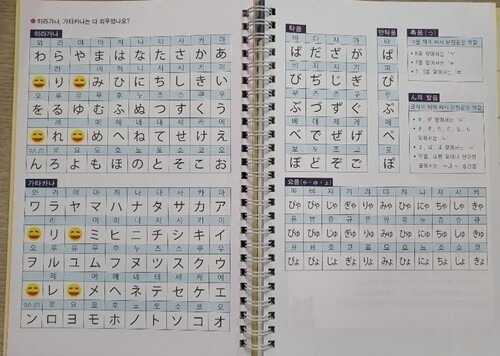 히라가나, 가타카나는 다 외우셨나요?
히라가나
와 라 야 마 하 나 타 사 카 아
わ ら や ま は な た さ か あ
리 미 히 니 치 시 키 이
り み ひ に ち し き い
오 루 유 무 후 누 츠 스 쿠 우
を る ゆ む ふ ぬ つ す く う
레 메 헤 네 테 세 케 에
れ め へ ね て せ け え
로 요 모 호 노 토 소 코 오
ん ろ よ も ほ の と そ こ お
가타카나
와 라 야 마 하 나 타 사 카 아
ワ ラ ヤ マ ハ ナ タ サ カ ア
리 미 히 니 치 시 키 이
リ ミ ヒ ニ チ シ キ イ
오 루 유 무 후 누 츠 스 쿠 우
ヲ ル ユ ム フ ヌ ツ ス ク ウ
레 메 헤 네 테 세 케 에
レ メ ヘ ネ テ セ ケ エ
로 요 모 호 노 토 소 코 오
ン ロ ヨ モ ホ ノ ト ソ コ オ
탁음
바 다 자 가
ば だ ざ が
び ぢ じ ぎ
ぶ づ ず ぐ
베 데 제 게
べ で ぜ げ
보 도 조 고
ぼ ど ぞ ご
반탁음
파
ぱ
피
ぴ
푸
ぷ
페
ぺ
포
ぽ
촉음 (っ)
ん의 발음
요음(ゃ・ゅ・ょ)
ぴゃ びゃ じゃ ぎゃ りゃ みゃ ひゃ にゃ ちゃ しゃ きゃ
ぴゅ びゅ じゅ ぎゅ りゅ みゅ ひゅ にゅ ちゅ しゅ きゅ
ぴょ びょ じょ ぎょ りょ みょ ひょ にょ ちょ しょ きょ